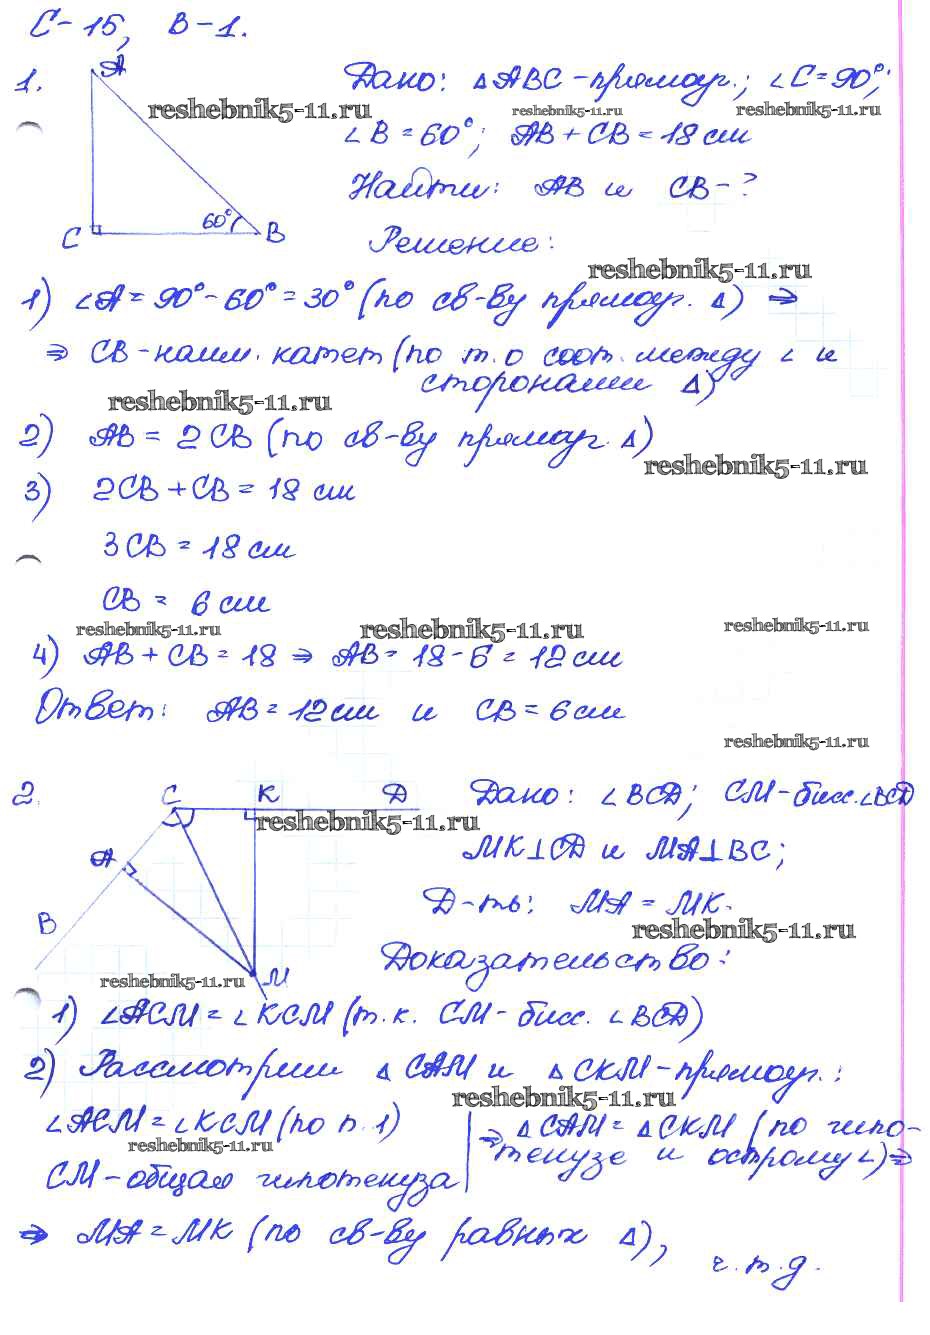 С-15, В-1.
1.
A
C
60°
B
Дано: △ABC-прямоуг.; ∠C=90°;
reshebnik5-11.ru
reshebnik5-11.ru
reshebnik5-11.ru
∠B=60°; AB+CB=18 см
Найти: AB и CB-?
Решение:
reshebnik5-11.ru
1) ∠A=90°-60°=30° (по св-ву прямоуг. △) ⇒
⇒ CB-наим. катет (по т. о соот. между ∠ и
сторонами △)
reshebnik5-11.ru
2) AB = 2CB (по св-ву прямоуг. △)
reshebnik5-11.ru
3) 2CB+CB=18 см
3CB=18 см
CB = 6 см
reshebnik5-11.ru
reshebnik5-11.ru
reshebnik5-11.ru
4) AB+CB=18 ⇒ AB=18-6=12 см
Ответ: AB=12 см и CB=6 см
reshebnik5-11.ru
2.
C
K
D
A
B
M
Дано: ∠BCD; CM-бисс.∠BCD
reshebnik5-11.ru
MK⊥CD и MA⊥BC;
Д-ть: MA = MK.
reshebnik5-11.ru
Доказательство:
reshebnik5-11.ru
1) ∠ACM=∠KCM (т.к. CM-бисс. ∠BCD)
2) Рассмотрим △CAM и △CKM-прямоуг.:
reshebnik5-11.ru
∠ACM=∠KCM (по п.1)
reshebnik5-11.ru
CM-общая гипотенуза
⇒ △CAM=△CKM (по гипо-
тенузе и острому ∠) ⇒
⇒ MA=MK (по св-ву равных △),
ч.т.д.